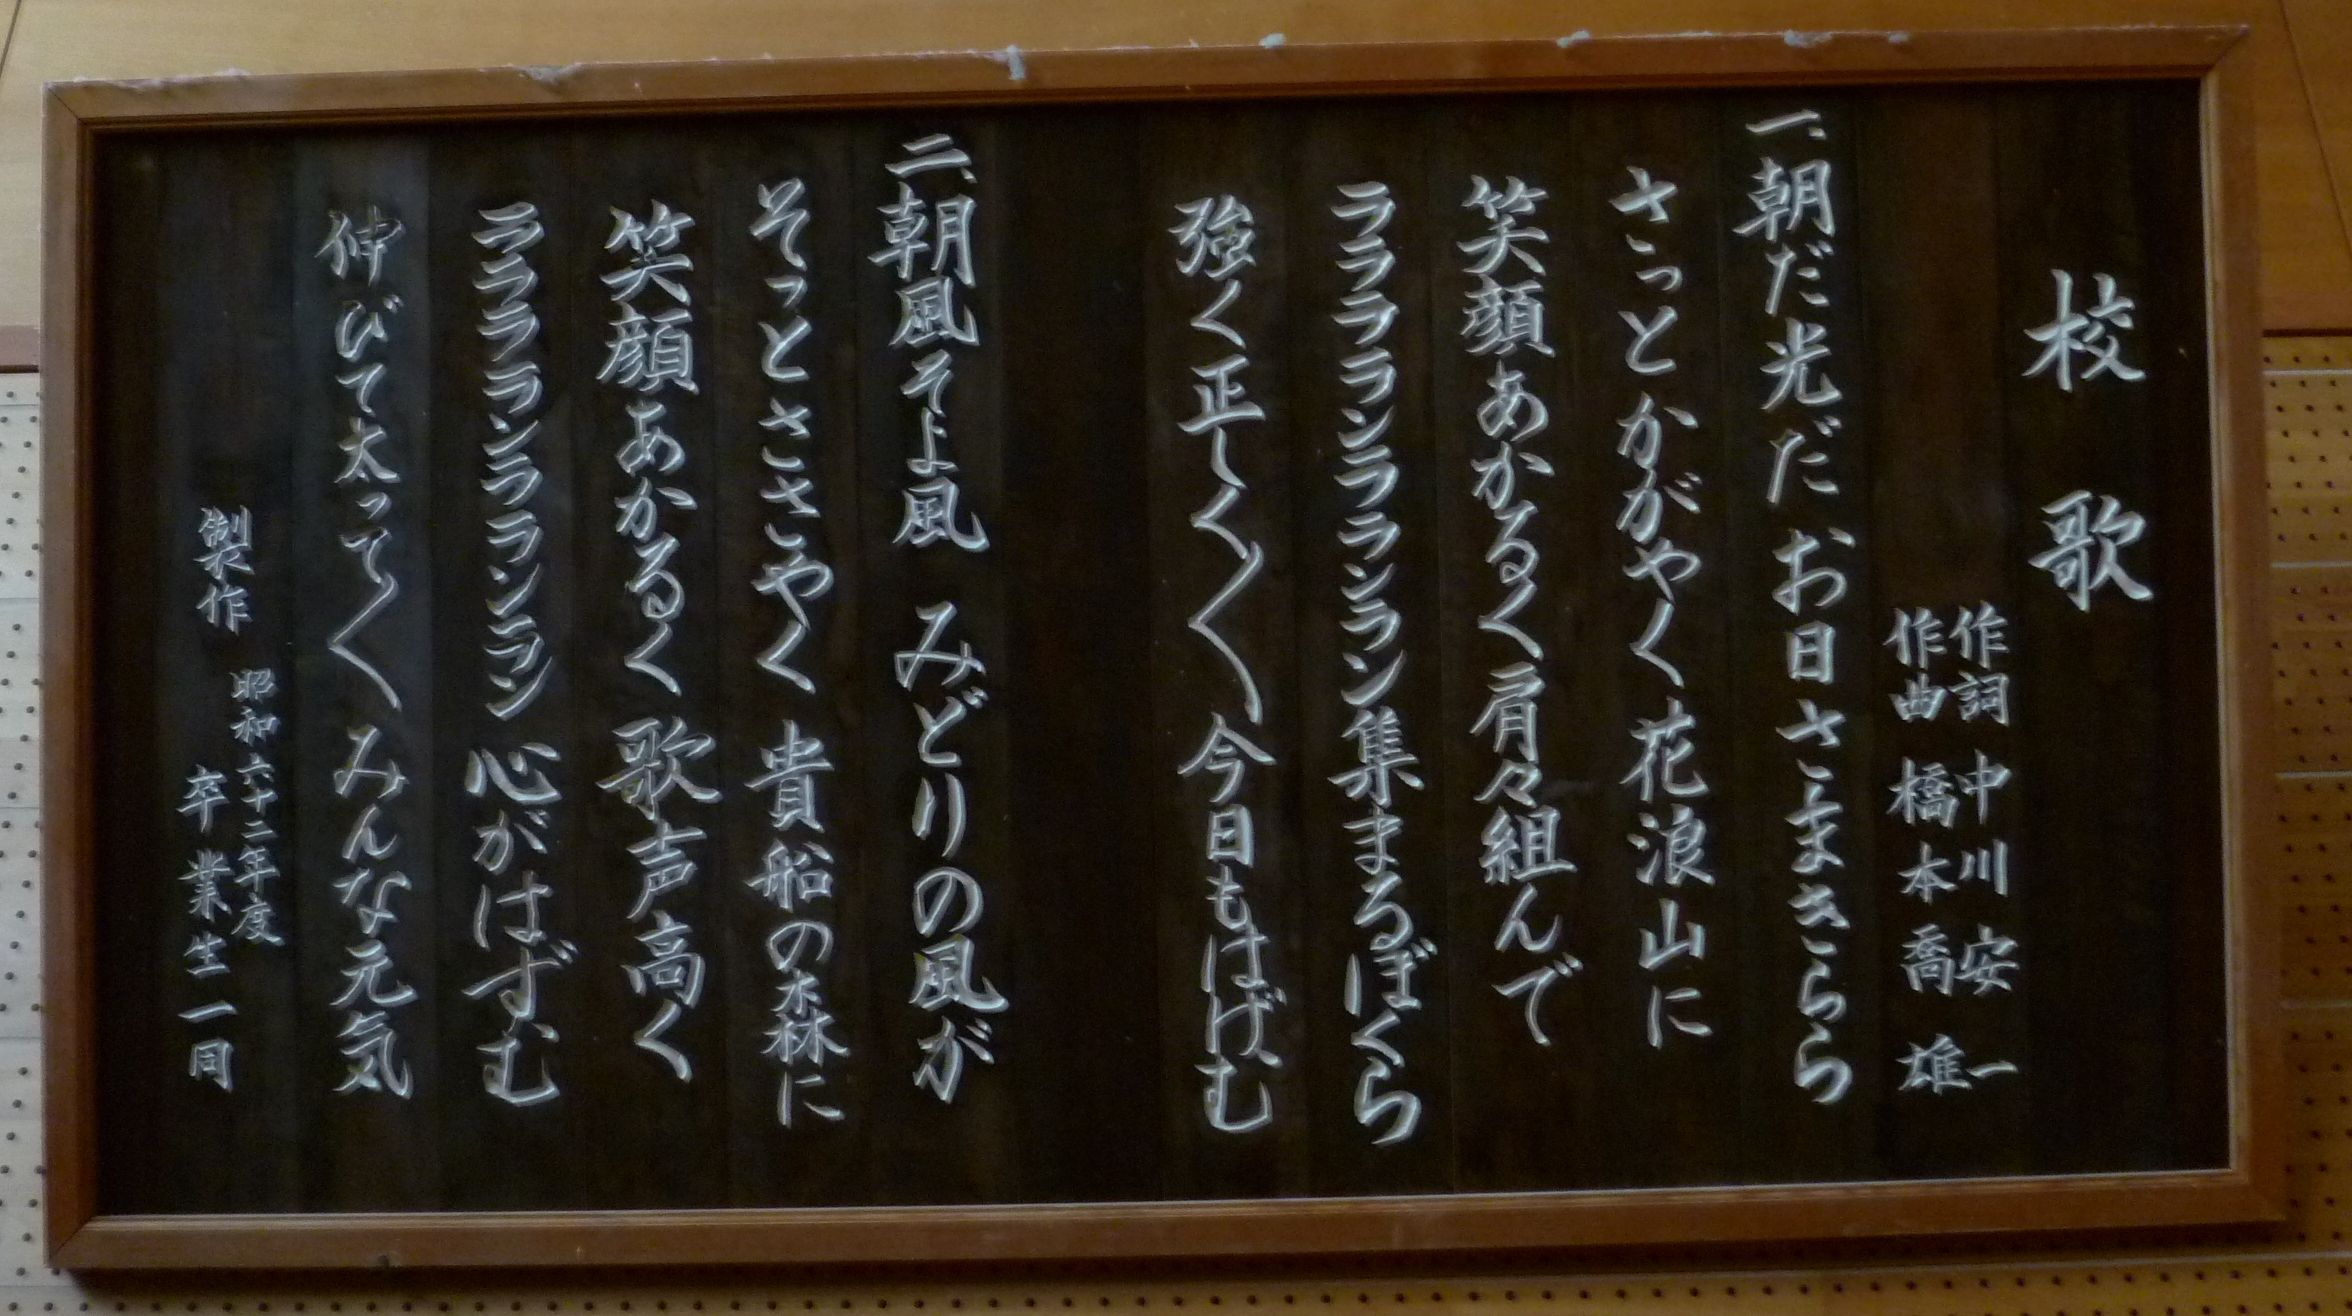 校歌
作詞 中川安一
作曲 橋本喬雄
一、朝だ光だ お日さまきらら
さっとかがやく花浪山に
笑顔あかるく肩々組んで
ララララランラララランラン集まるぼくら
強く正しく〳〵今日もはげむ
二、朝風そよ風 みどりの風が
そっとささやく 貴船の森に
笑顔あかるく 歌声高く
ララララランラランラン 心がはずむ
伸びて太って〳〵みんな元気
製作 昭和六十二年度
卒業生一同